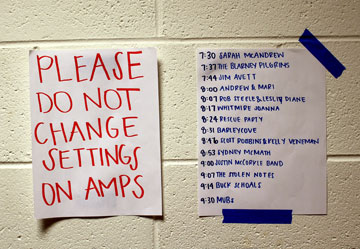 PLEASE
DO NOT
CHANGE
SETTINGS
ON AMPS
7:30 SARAH MCANDREW
7:37 THE BLARNEY PILGRIMS
7:44 JIM AVETT
8:00 ANDREW & MARI
8:07 ROB STEELE & LESLIE DIANE
8:17 WHITMIRE JOANNA
8:24 RESCUE PARTY
8:31 BARLEYCOVE
8:46 SCOTT ROBBINS & KELLY VENEMAN
8:53 SYDNEY MCMATH
9:00 JUSTIN MCCORKLE BAND
9:07 THE STOLEN NOTES
9:14 BUCK SCHOALS
9:30 MUBS